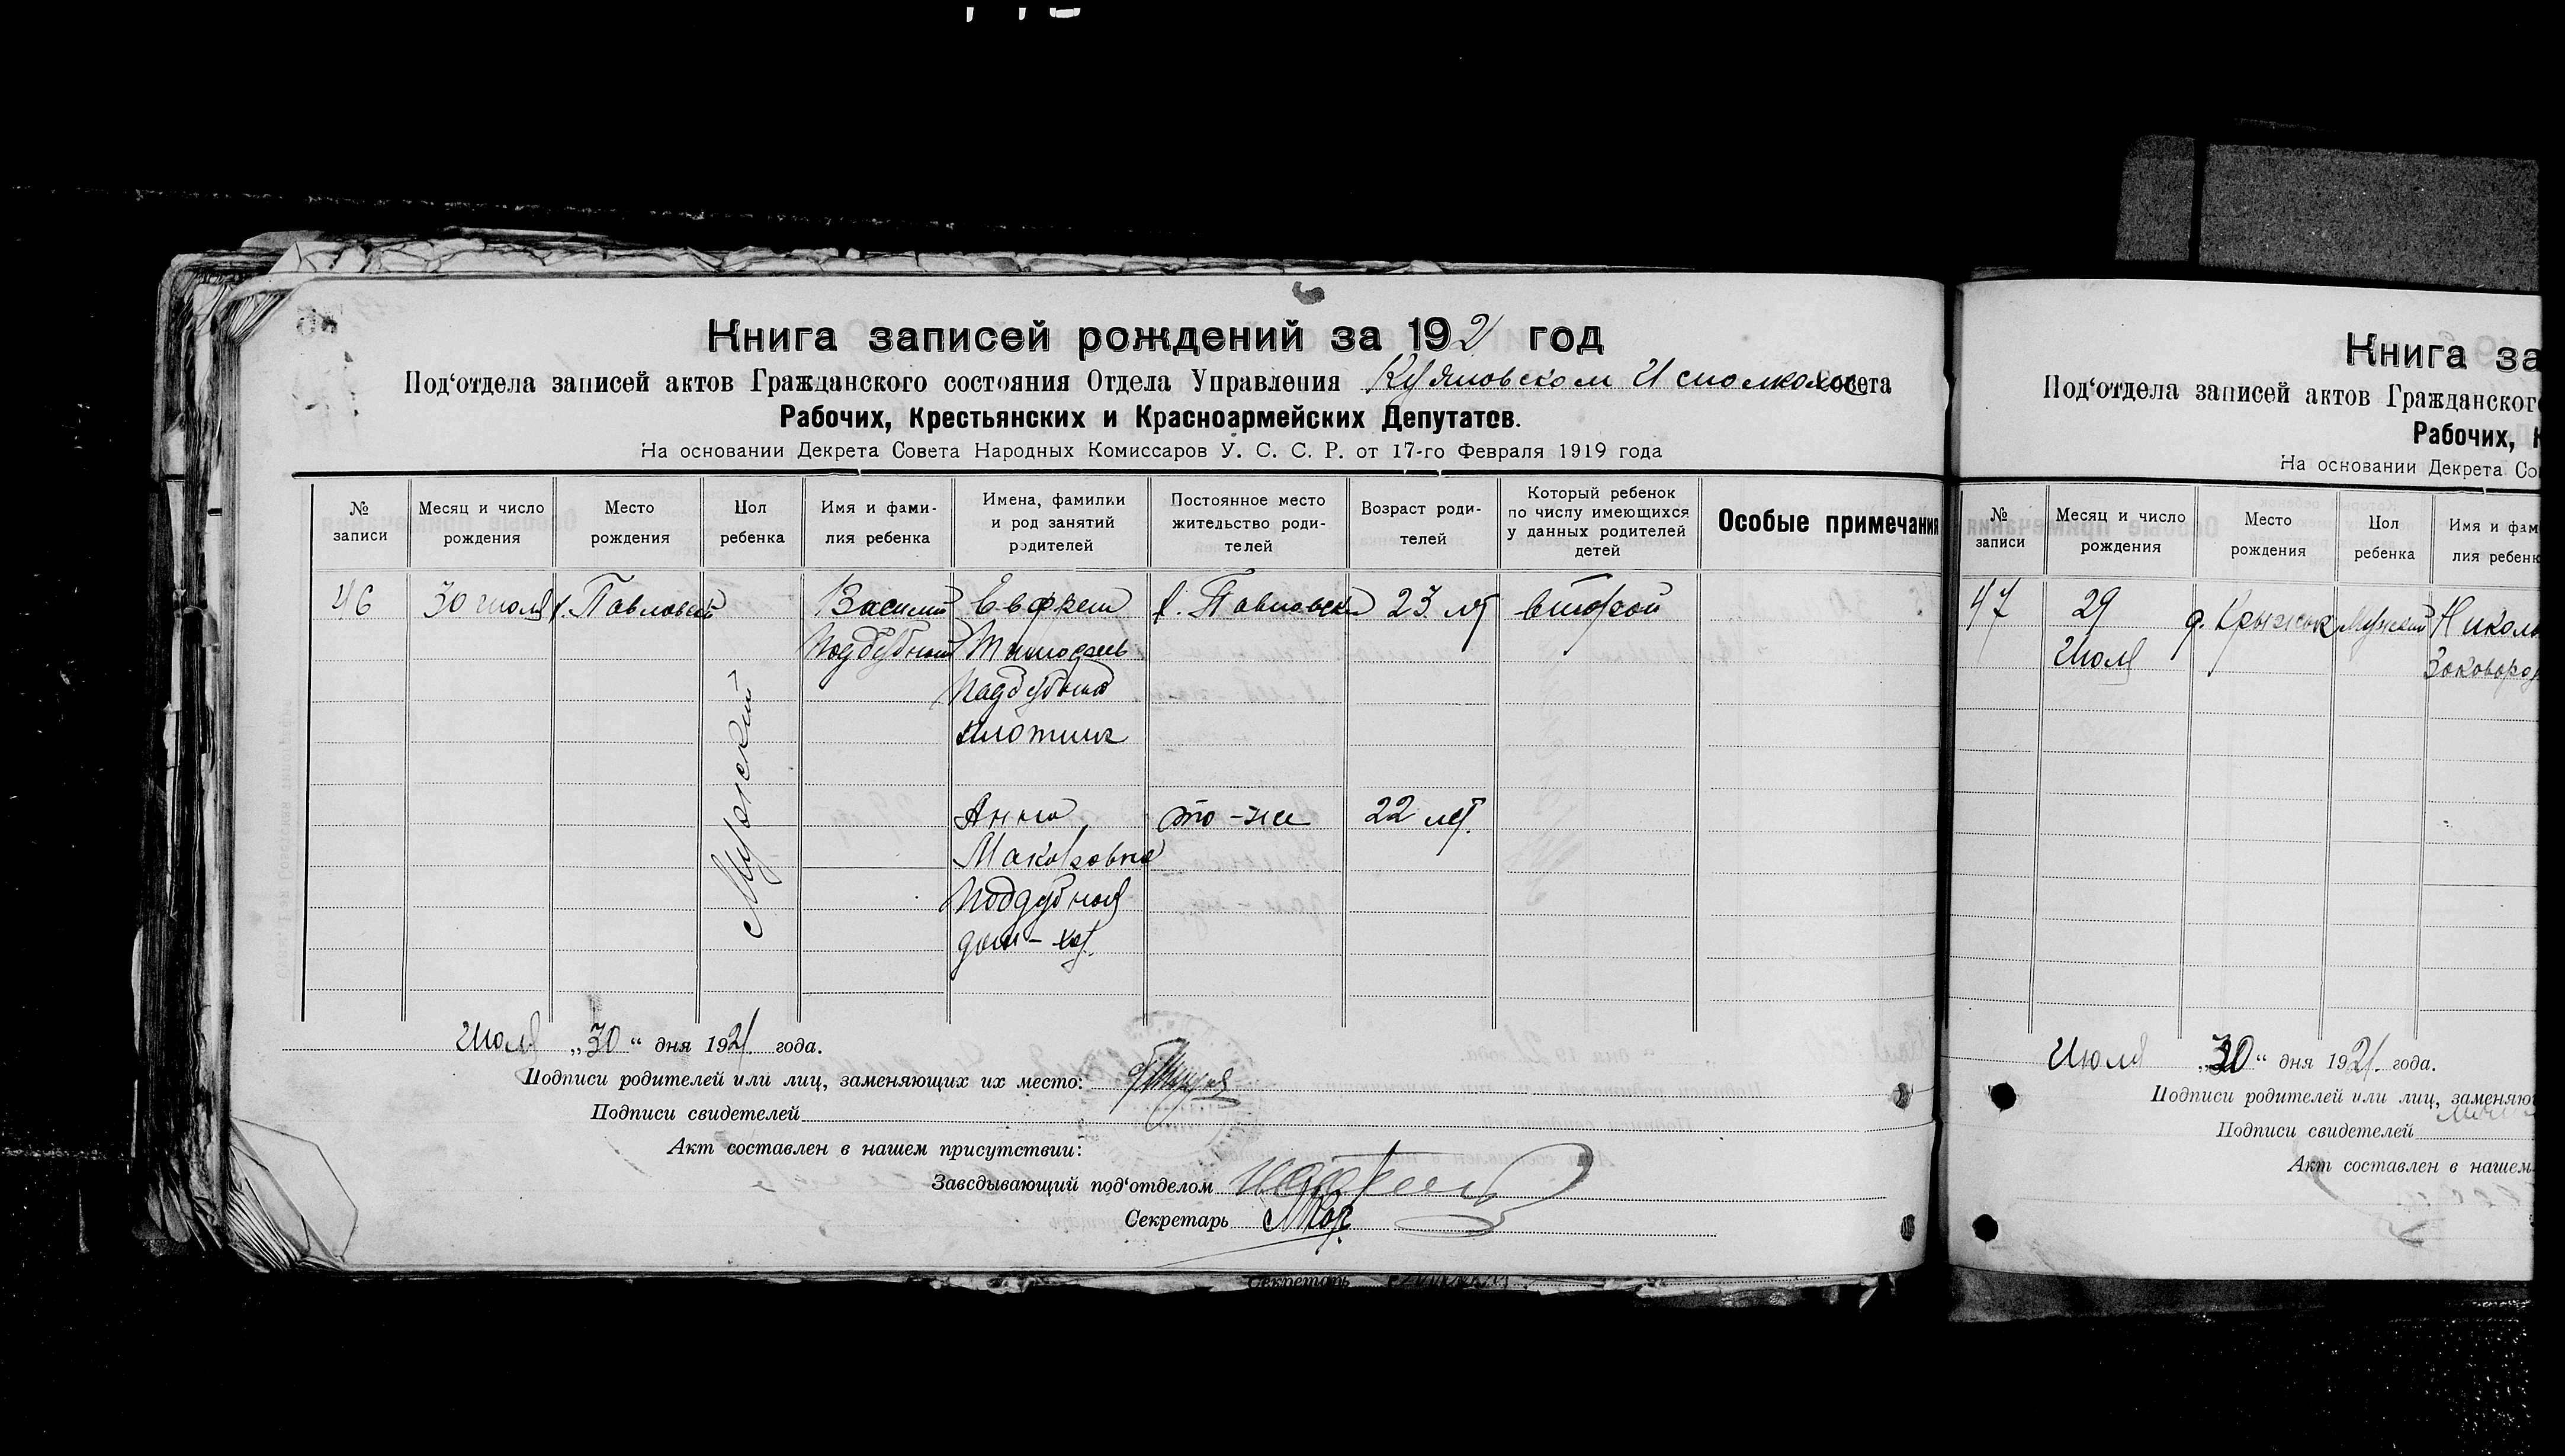 Книга записей рождений за 1921 год
Под‘отдела записей актов Гражданского состояния Отдела Управления Совета
Рабочих, Крестьянских и Красноармейских Депутатов.
На основании Декрета Совета Народных Комиссаров У. С. С. Р. от 17-го Февраля 1919 года
№ записи
Месяц и число рождения
Место рождения
Пол ребенка
Имя и фами-
лия ребенка
Имена, фамилии
и род занятий
родителей
Постоянное место
жительство роди-
телей
Возраст роди-
телей
Который ребенок
по числу имеющихся
у данных родителей
детей
Особые примечания
46
30 июля
Мужской
Василий
Поддубный
второй
23 лет
Анна
Макаровна
Поддубная
дом-хоз.
то-же
22 лет.
Июля „30“ дня 1921. года.
Подписи родителей или лиц, заменяющих их место:
Подписи свидетелей
Акт составлен в нашем присутствии:
Заведывающий под‘отделом
Секретарь
Секретарь
Книга за
Под‘отдела записей актов Гражданского
Рабочих, К
На основании Декрета Со
№ записи
Месяц и число рождения
Место рождения
Пол ребенка
Имя и фам
лия ребенк
47
29
Июля
Мужской
Июля „30“ дня 1921. года.
Подписи родителей или лиц, заменяю
Подписи свидетелей
Акт составлен в нашем